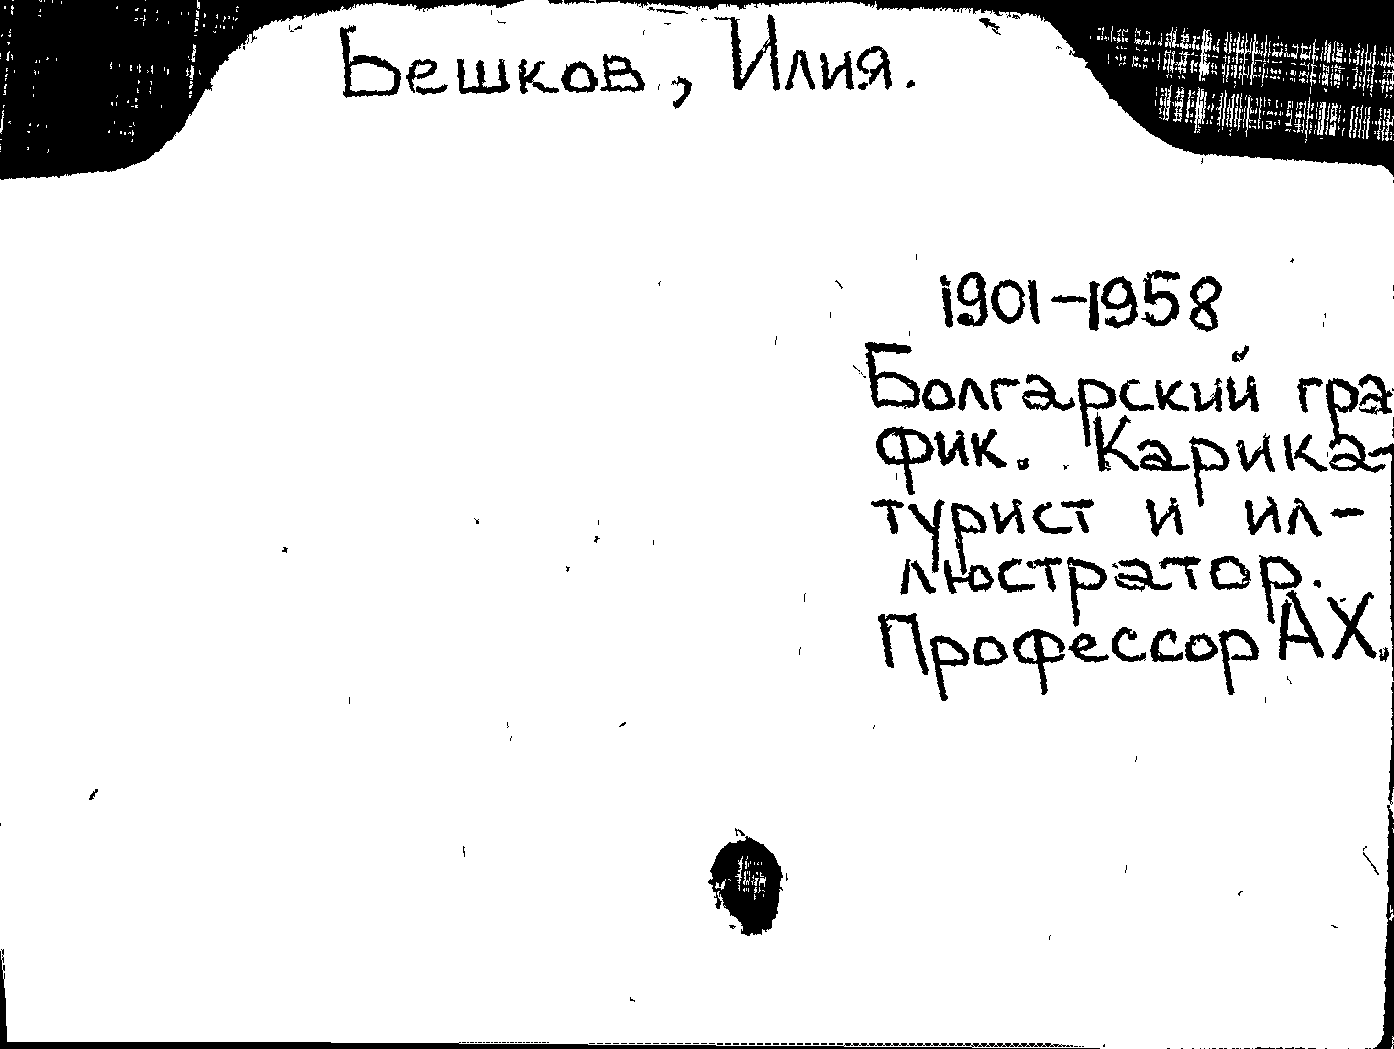 Бешков, Илия.
1901-1958
Болгарский гра
фик. Карика-
турист и ил-
люстратор.
Профессор АХ.